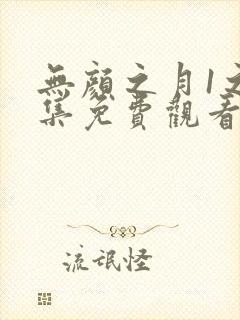 無顏之月1文
集免費觀看
流氓怪